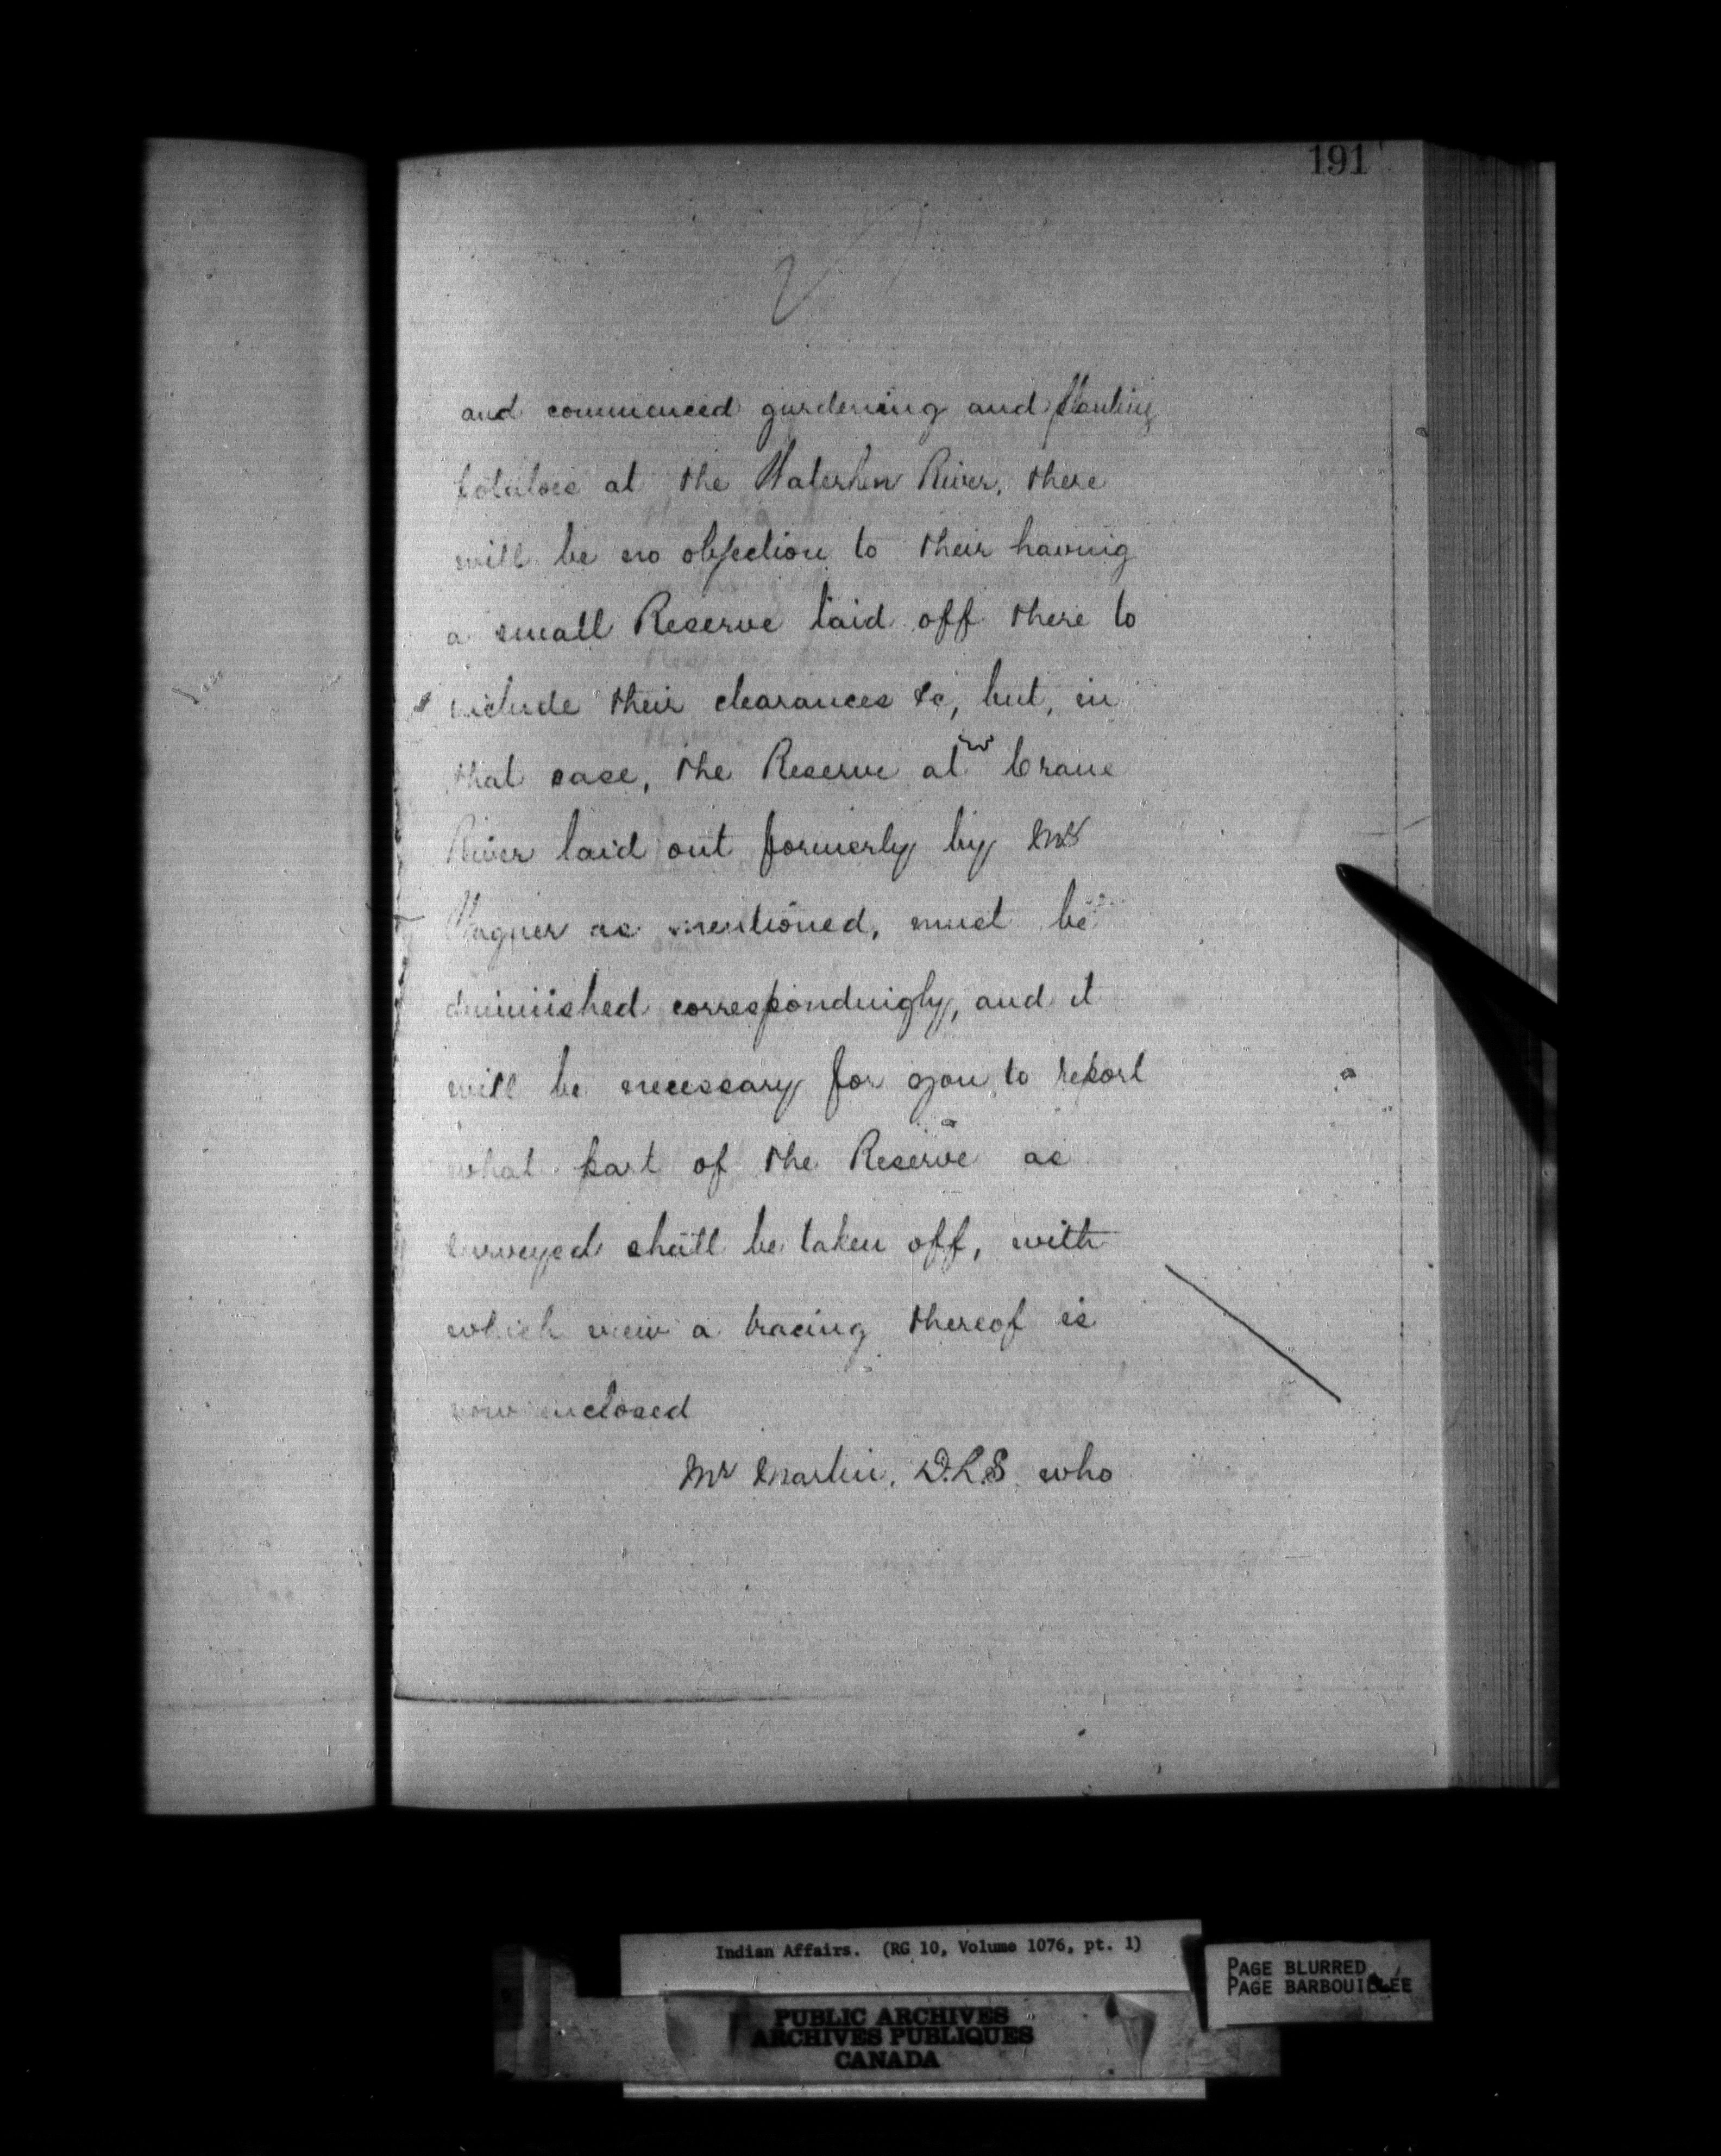 191
and commenced gardening and planting
potatoes at the Waterhen River, there
will be no objection to their having
a small Reserve laid off there to
include their clearances &c, but, in
that case, the Reserve at Crane
River laid out formerly by Mr
Wagner as mentioned, must be
diminished correspondingly, and it
will be necessary for you to report
what part of the Reserve as
surveyed shall be taken off, with
which view a tracing thereof is
now enclosed
Mr Martin, D.L.S. who
Indian Affairs. (RG 10, Volume 1076, pt. 1)
PAGE BLURRED
PAGE BARBOUILLÉE
PUBLIC ARCHIVES
ARCHIVES PUBLIQUES
CANADA